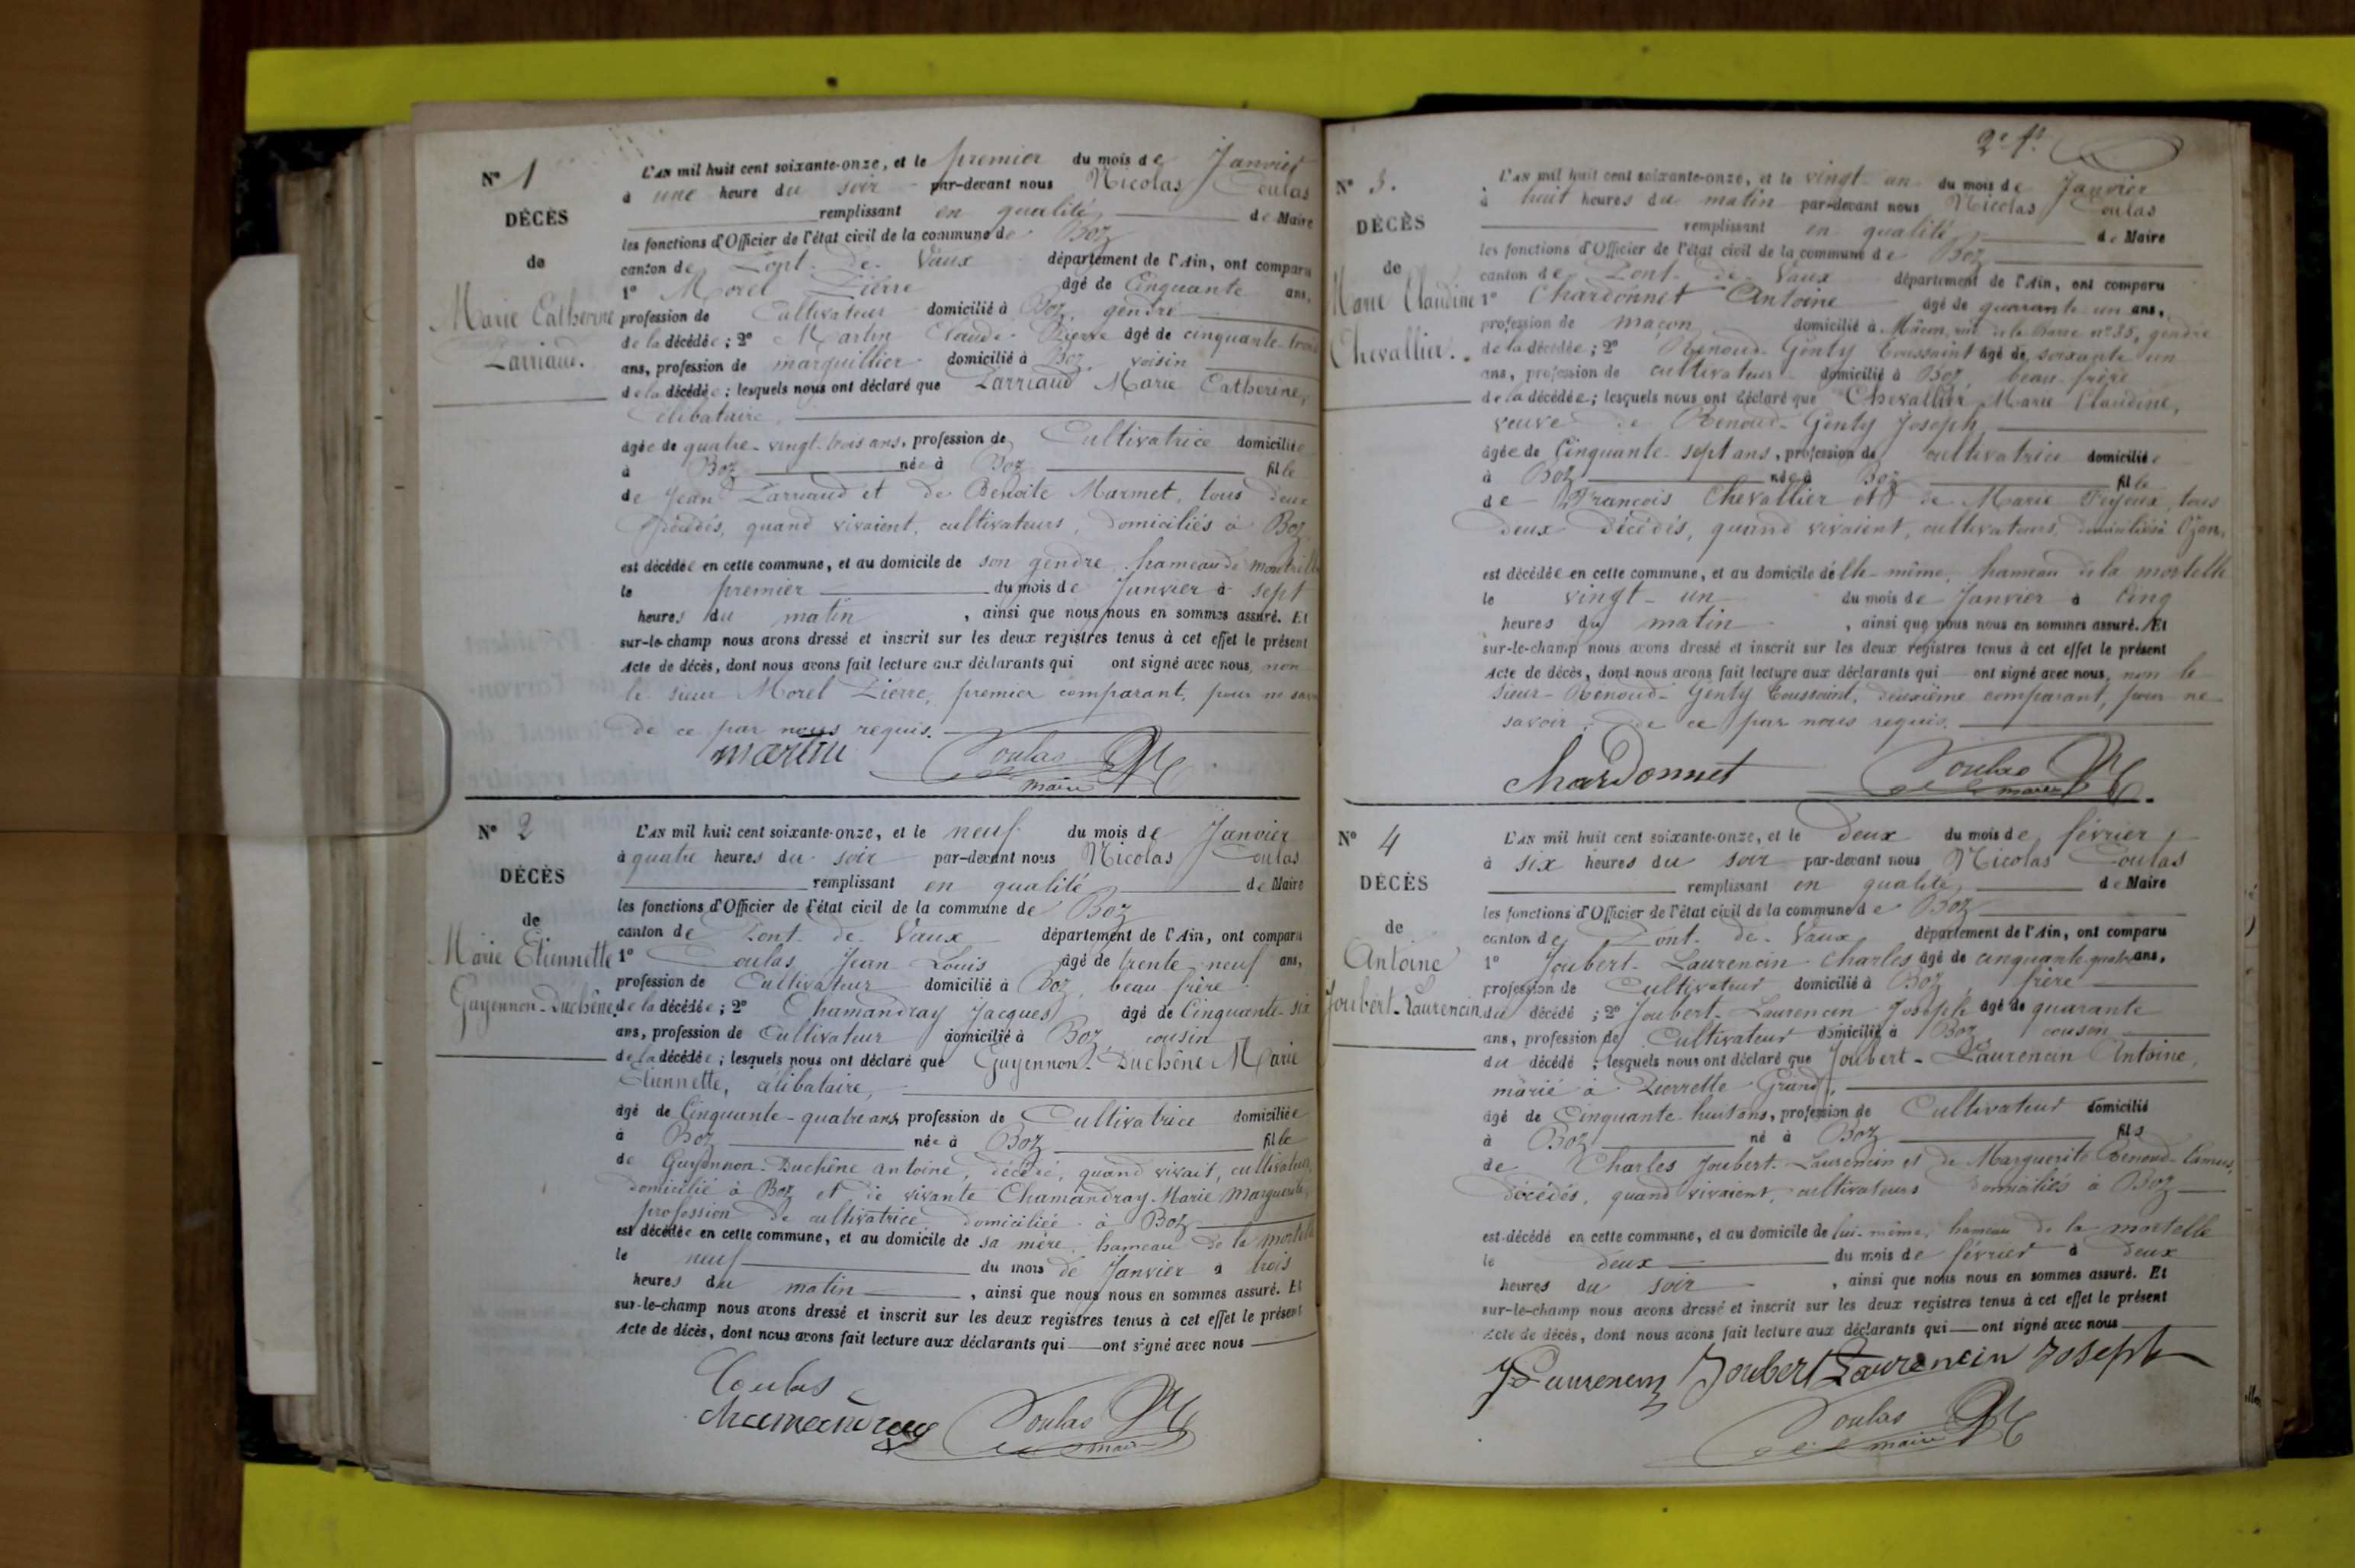 N° 1
DÉCÈS
de
Marie Catherine
Larriaud.
L'AN mil huit cent soixante-onze, et le premier du mois de Janvier
à une heure du soir par-devant nous Nicolas Coulas
remplissant en qualité de Maire
les fonctions d'Officier de l'état civil de la commune de Boz
canton de Pont-de-Vaux département de l'Ain, ont comparu
1° Morel Pierre âgé de Cinquante ans,
profession de Cultivateur domicilié à Boz, gendre
de la décédée; 2° Martin Claude-Pierre âgé de cinquante-trois
ans, profession de marguillier domicilié à Boz, voisin
de la décédée; lesquels nous ont déclaré que Larriaud Marie Catherine,
célibataire,
âgée de quatre-vingt-trois ans, profession de Cultivatrice domiciliée
à Boz née à Boz fille
de Jean Larriaud et de Benoite Marmet, tous deux
décédés, quand vivaient, cultivateurs, domiciliés à Boz
est décédée en cette commune, et au domicile de son gendre, hameau de
le premier du mois de Janvier à sept
heures du matin, ainsi que nous nous en sommes assuré. Et
sur-le-champ nous avons dressé et inscrit sur les deux registres tenus à cet effet le présent
Acte de décès, dont nous avons fait lecture aux déclarants qui ont signé avec nous, non
le sieur Morel Pierre, premier comparant, pour ne savoir
de ce par nous requis.
martin Coulas
maire
N° 2
DÉCÈS
de
Marie Etiennette
Guyennon-Duchêne.
L'AN mil huit cent soixante-onze, et le neuf du mois de Janvier
à quatre heures du soir par-devant nous Nicolas Coulas
remplissant en qualité de Maire
les fonctions d'Officier de l'état civil de la commune de Boz
canton de Pont-de-Vaux département de l'Ain, ont comparu
1° Coulas Jean-Louis âgé de trente-neuf ans,
profession de Cultivateur domicilié à Boz, beau frère
de la décédée; 2° Chamandray Jacques âgé de Cinquante-six
ans, profession de Cultivateur domicilié à Boz, cousin
de la décédée; lesquels nous ont déclaré que Guyennon-Duchêne Marie
Etiennette, célibataire,
âgé de Cinquante-quatre ans, profession de Cultivatrice domiciliée
à Boz née à Boz fille
de Guyennon-Duchêne antoine, décédé, quand vivait, cultivateur,
domicilié à Boz et de vivante Chamandray Marie Marguerite,
profession de cultivatrice domiciliée à Boz
est décédée en cette commune, et au domicile de sa mère, hameau de la mortelle
le neuf du mois de Janvier à trois
heures du matin, ainsi que nous nous en sommes assuré. Et
sur-le-champ nous avons dressé et inscrit sur les deux registres tenus à cet effet le présent
Acte de décès, dont nous avons fait lecture aux déclarants qui ont signé avec nous
Coulas
chamandray Coulas
maire
2e ft
N° 3.
DÉCÈS
de
Marie Claudine
Chevallier.
L'AN mil huit cent soixante-onze, et le vingt-un du mois de Janvier
à huit heures du matin par-devant nous Nicolas Coulas
remplissant en qualité de Maire
les fonctions d'Officier de l'état civil de la commune de Boz
canton de Pont-de-Vaux département de l'Ain, ont comparu
1° Chardonnet Antoine âgé de quarante-un ans,
profession de maçon domicilié à Mâcon, rue de la Barre n° 35, gendre
de la décédée; 2° Renoud-Genty Toussaint âgé de soixante-un
ans, profession de cultivateur domicilié à Boz, beau-frère
de la décédée; lesquels nous ont déclaré que Chevallier Marie Claudine,
veuve de Renoud-Genty Joseph,
âgée de Cinquante-sept ans, profession de cultivatrice domiciliée
à Boz née à Boz fille
de François Chevallier et de Marie tous
deux décédés, quand vivaient, cultivateurs, domiciliés à Ozan,
est décédée en cette commune, et au domicile d'elle-même, hameau de la mortelle
le vingt-un du mois de Janvier à Cinq
heures du matin, ainsi que nous nous en sommes assuré. Et
sur-le-champ nous avons dressé et inscrit sur les deux registres tenus à cet effet le présent
Acte de décès, dont nous avons fait lecture aux déclarants qui ont signé avec nous, non le
sieur-Renoud-Genty Toussaint, deuxième comparant, pour ne
savoir, de ce par nous requis.
Chardonnet Coulas
maire
N° 4
DÉCÈS
de
Antoine
Joubert-Laurencin
L'AN mil huit cent soixante-onze, et le deux du mois de février
à six heures du soir par-devant nous Nicolas Coulas
remplissant en qualité, de Maire
les fonctions d'Officier de l'état civil de la commune de Boz
canton de Pont-de-Vaux département de l'Ain, ont comparu
1° Joubert-Laurencin Charles âgé de cinquante-quatre ans,
profession de Cultivateur domicilié à Boz, frère
du décédé; 2° Joubert-Laurencin Joseph âgé de quarante
ans, profession de Cultivateur domicilié à Boz cousin
du décédé; lesquels nous ont déclaré que Joubert-Laurencin Antoine,
marié à Pierrette Grand,
âgé de Cinquante-huit ans, profession de Cultivateur domicilié
à Boz né à Boz fils
de Charles Joubert-Laurencin et de Marguerite Renoud-Camus,
décédés, quand vivaient, cultivateurs domiciliés à Boz
est décédé en cette commune, et au domicile de lui-même, hameau de la mortelle
le deux du mois de février à deux
heures du soir, ainsi que nous nous en sommes assuré. Et
sur-le-champ nous avons dressé et inscrit sur les deux registres tenus à cet effet le présent
Acte de décès, dont nous avons fait lecture aux déclarants qui ont signé avec nous
Laurencin Joubert Laurencin Joseph
Coulas
maire